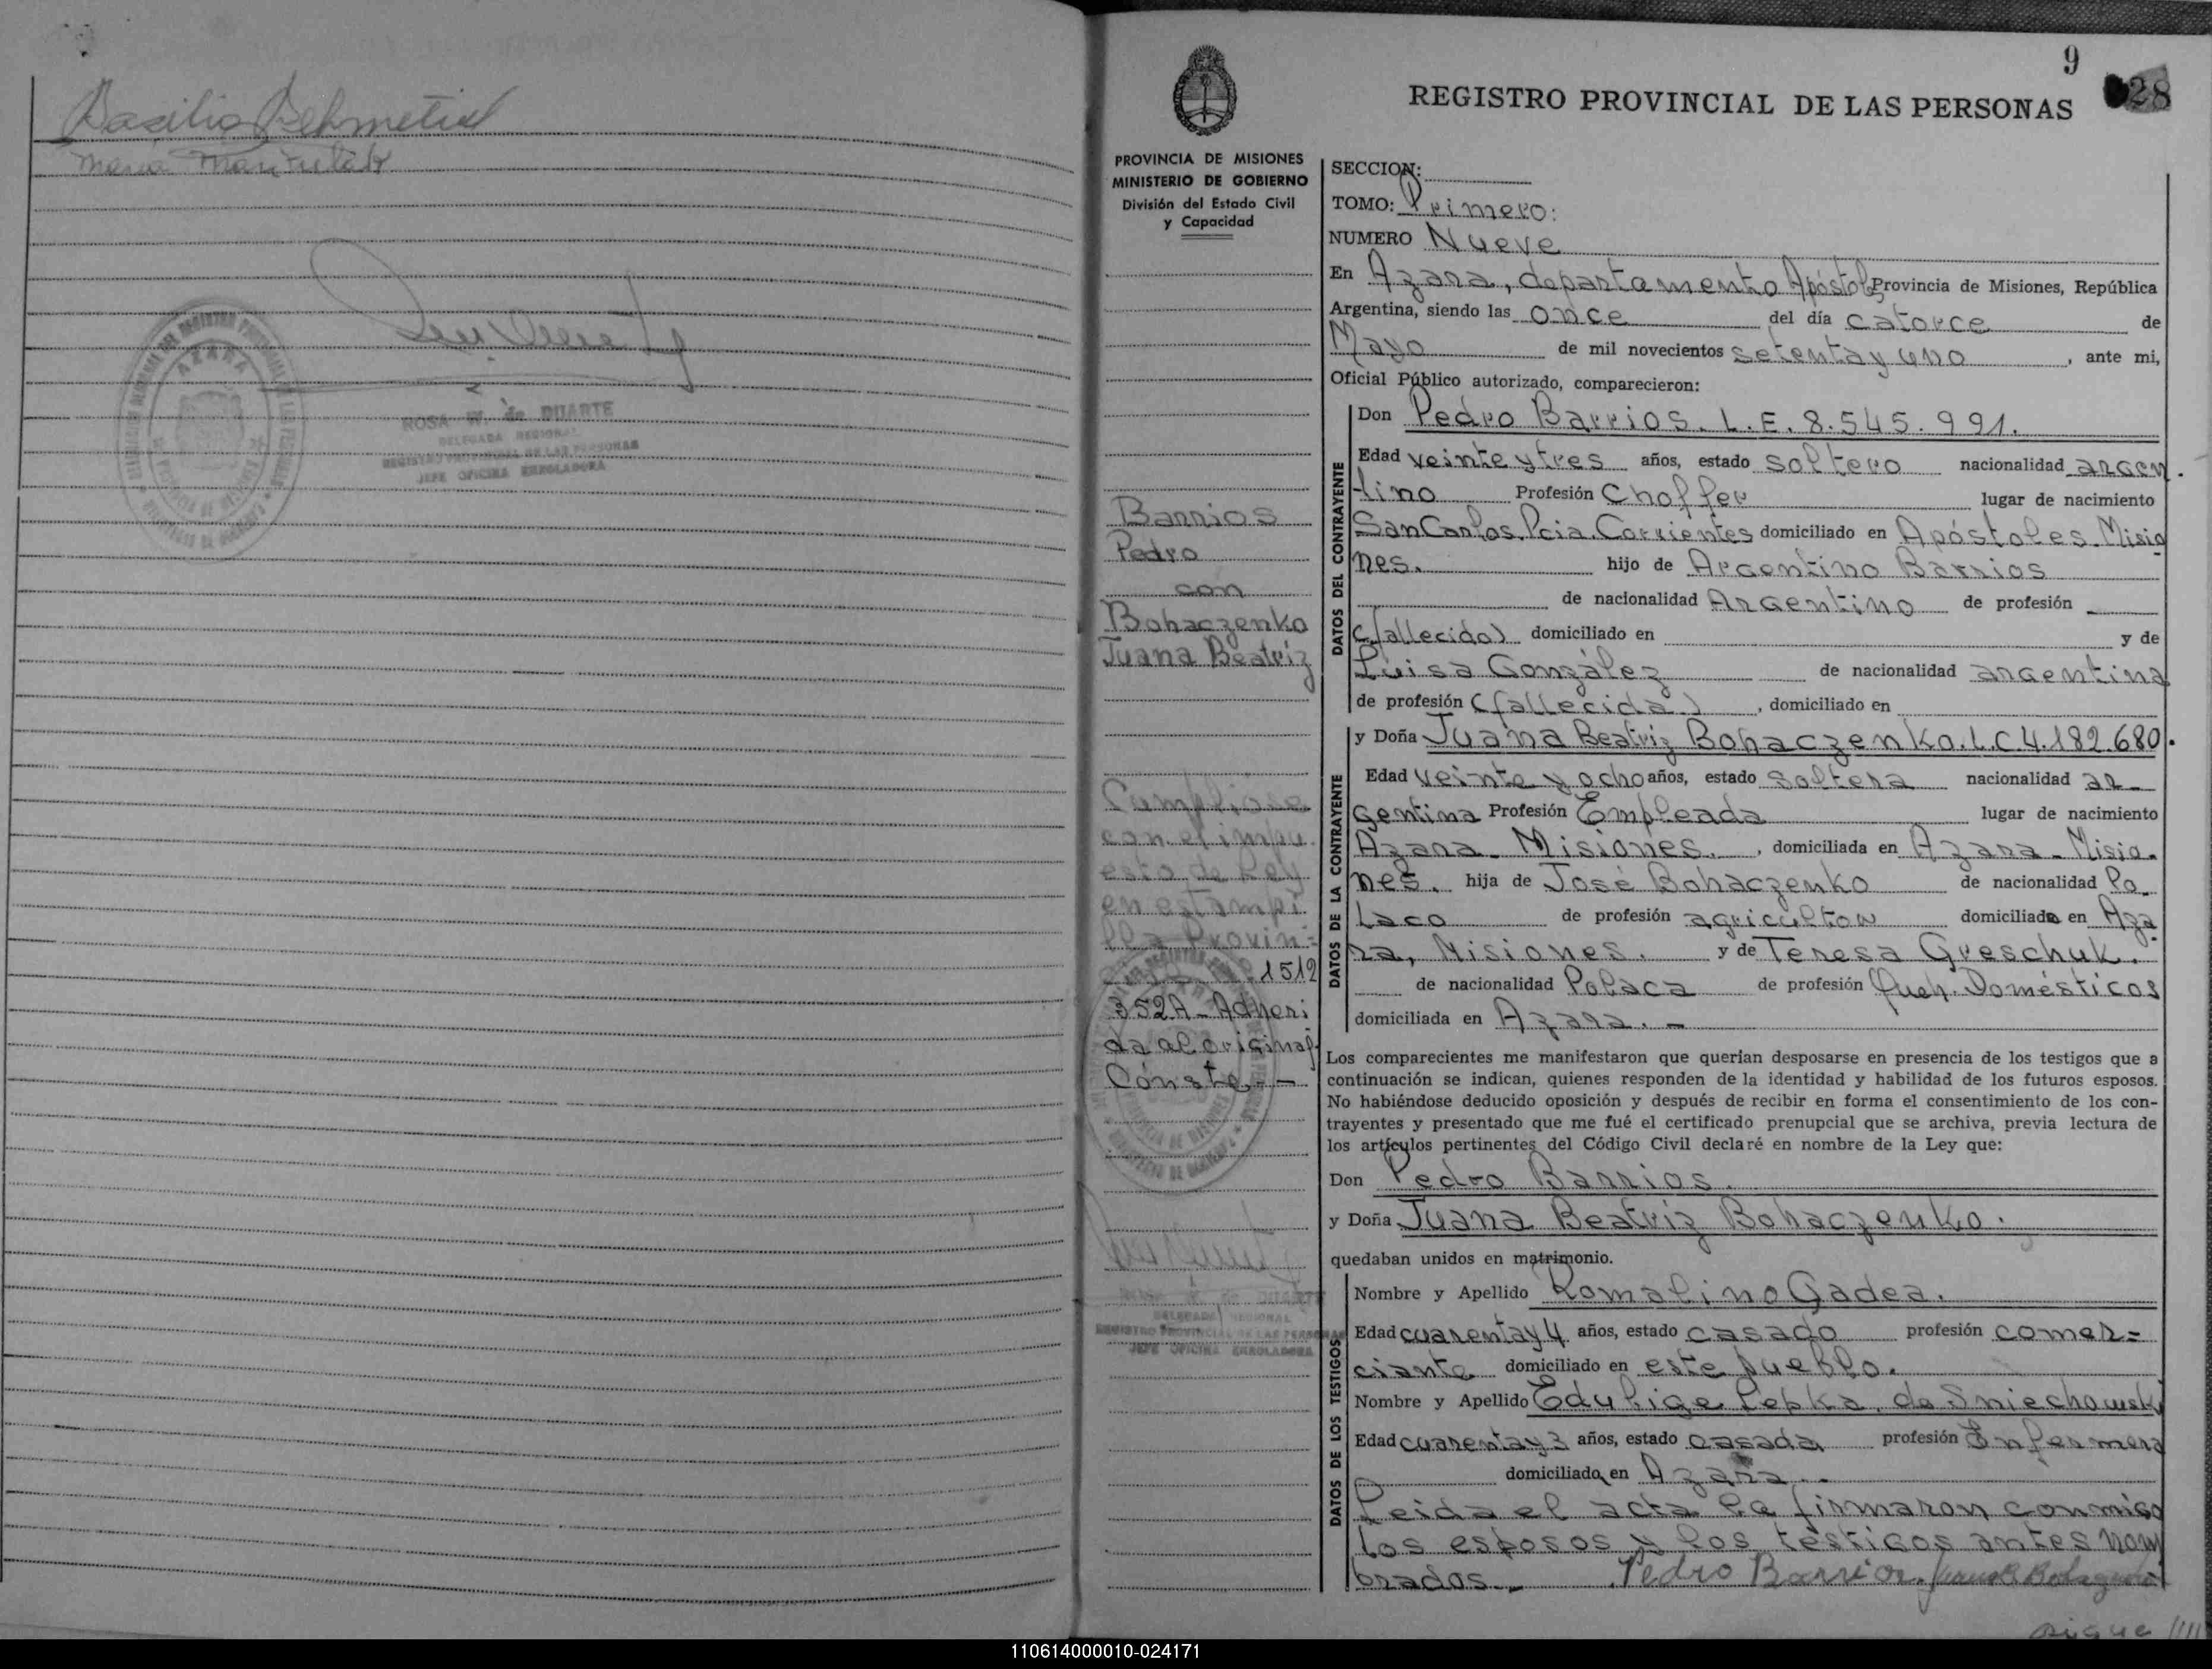 Basilio
Maria
AZARA
ROSA W. de DUARTE
DELEGADA REGIONAL
REGISTRO PROVINCIAL DE LAS PERSONAS
JEFE OFICINA ENROLADORA
9
28
REGISTRO PROVINCIAL DE LAS PERSONAS
PROVINCIA DE MISIONES
MINISTERIO DE GOBIERNO
División del Estado Civil
y Capacidad
Barrios
Pedro
con
Bohaczenko
Juana Beatriz
Cumplióse
con el impu
esto de Ley
en estampi
lla Provin=
1512
352A - Adheri
da al original
Conste. -
DELEGADA REGIONAL
REGISTRO PROVINCIAL DE LAS PERSONAS
JEFE OFICINA ENROLADORA
SECCION:
TOMO: Primero:
NUMERO Nueve
En Azara, departamento Apóstoles Provincia de Misiones, República
Argentina, siendo las once del día catorce de
Mayo de mil novecientos setenta y uno, ante mi,
Oficial Público autorizado, comparecieron:
DATOS DEL CONTRAYENTE
Don Pedro Barrios. L.E. 8.545.991.
Edad veinte y tres años, estado soltero nacionalidad argen
tino Profesión Choffer lugar de nacimiento
San Carlos. Pcia. Corrientes domiciliado en Apóstoles. Misio
nes. hijo de Argentino Barrios
de nacionalidad Argentino de profesión -
(fallecido) domiciliado en y de
Luisa González de nacionalidad argentina
de profesión (fallecida), domiciliado en
DATOS DE LA CONTRAYENTE
y Doña Juana Beatriz Bohaczenko. L.C. 4.182.680.
Edad veinte y ocho años, estado soltera nacionalidad ar-
gentina Profesión Empleada lugar de nacimiento
Azara - Misiones., domiciliada en Azara - Misio-
nes. hija de José Bohaczenko de nacionalidad Po-
laco de profesión agricultor domiciliado en Aza
ra, Misiones. y de Teresa Greschuk.
de nacionalidad Polaca de profesión Queh. Domésticos
domiciliada en Azara. -
Los comparecientes me manifestaron que querían desposarse en presencia de los testigos que a
continuación se indican, quienes responden de la identidad y habilidad de los futuros esposos.
No habiéndose deducido oposición y después de recibir en forma el consentimiento de los con-
trayentes y presentado que me fué el certificado prenupcial que se archiva, previa lectura de
los artículos pertinentes del Código Civil declaré en nombre de la Ley que:
Don Pedro Barrios.
y Doña Juana Beatriz Bohaczenko.
quedaban unidos en matrimonio.
DATOS DE LOS TESTIGOS
Nombre y Apellido Romalino Gadea.
Edad cuarenta y 4 años, estado casado profesión comer=
ciante domiciliado en este pueblo.
Nombre y Apellido Edulige Lepka. de Sniechowski
Edad cuarenta y 3 años, estado casada profesión Enfermera
domiciliado en Azara.
Leida el acta la firmaron conmigo
los esposos y los testigos antes nom
brados. - Pedro Barrios.
sigue ////
110614000010-024171